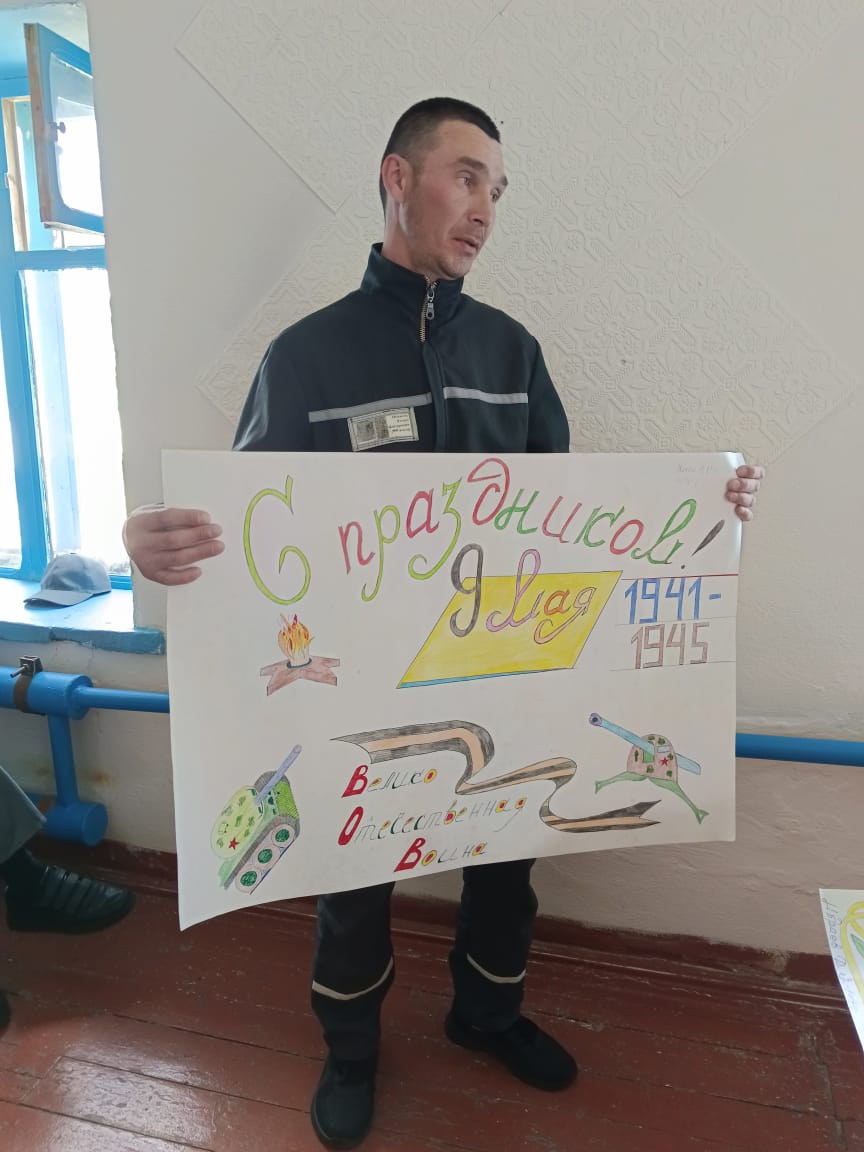 С праздником!
9 Мая
1941-
1945
Велико
Отечественная
Воина